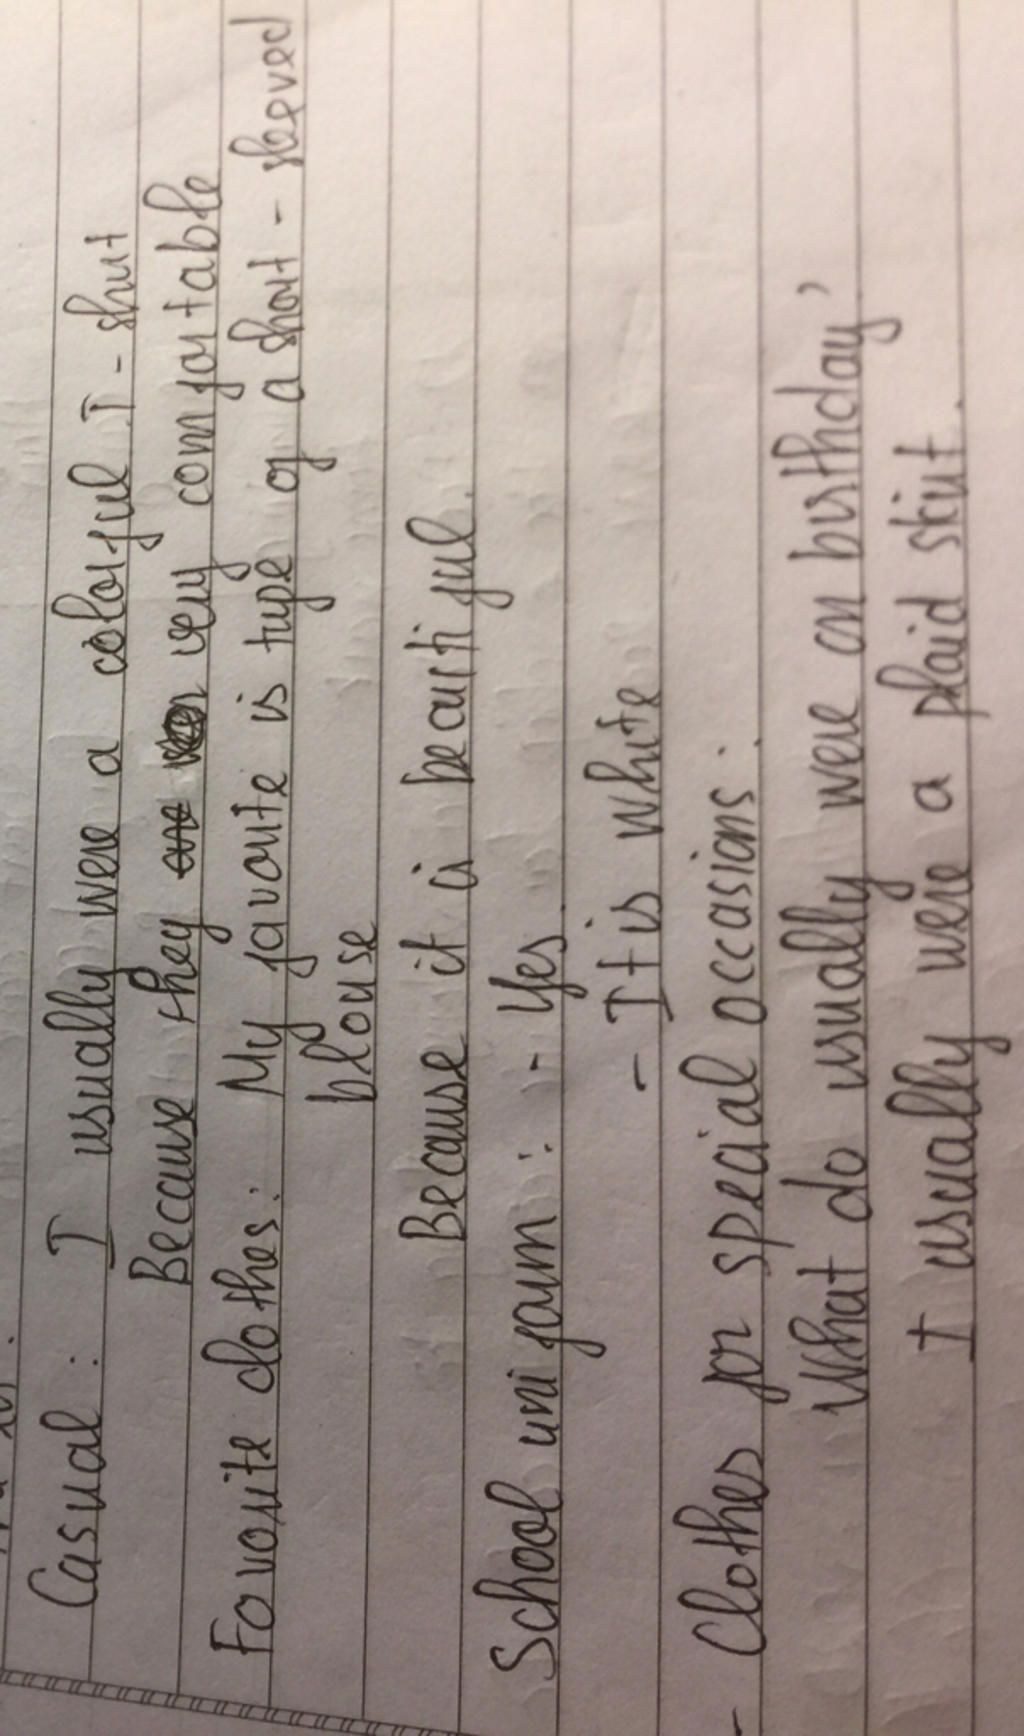 Casual : I usually were a colorful T - shirt
Because they very comfortable
Favorite clothes : My favorite is type of a short - sleeved
blouse
Because it is beautiful.
School uniform : - Yes
- It is white
- Clothes for special occasions :
What do usually were on birthday,
I usually were a plaid skirt.